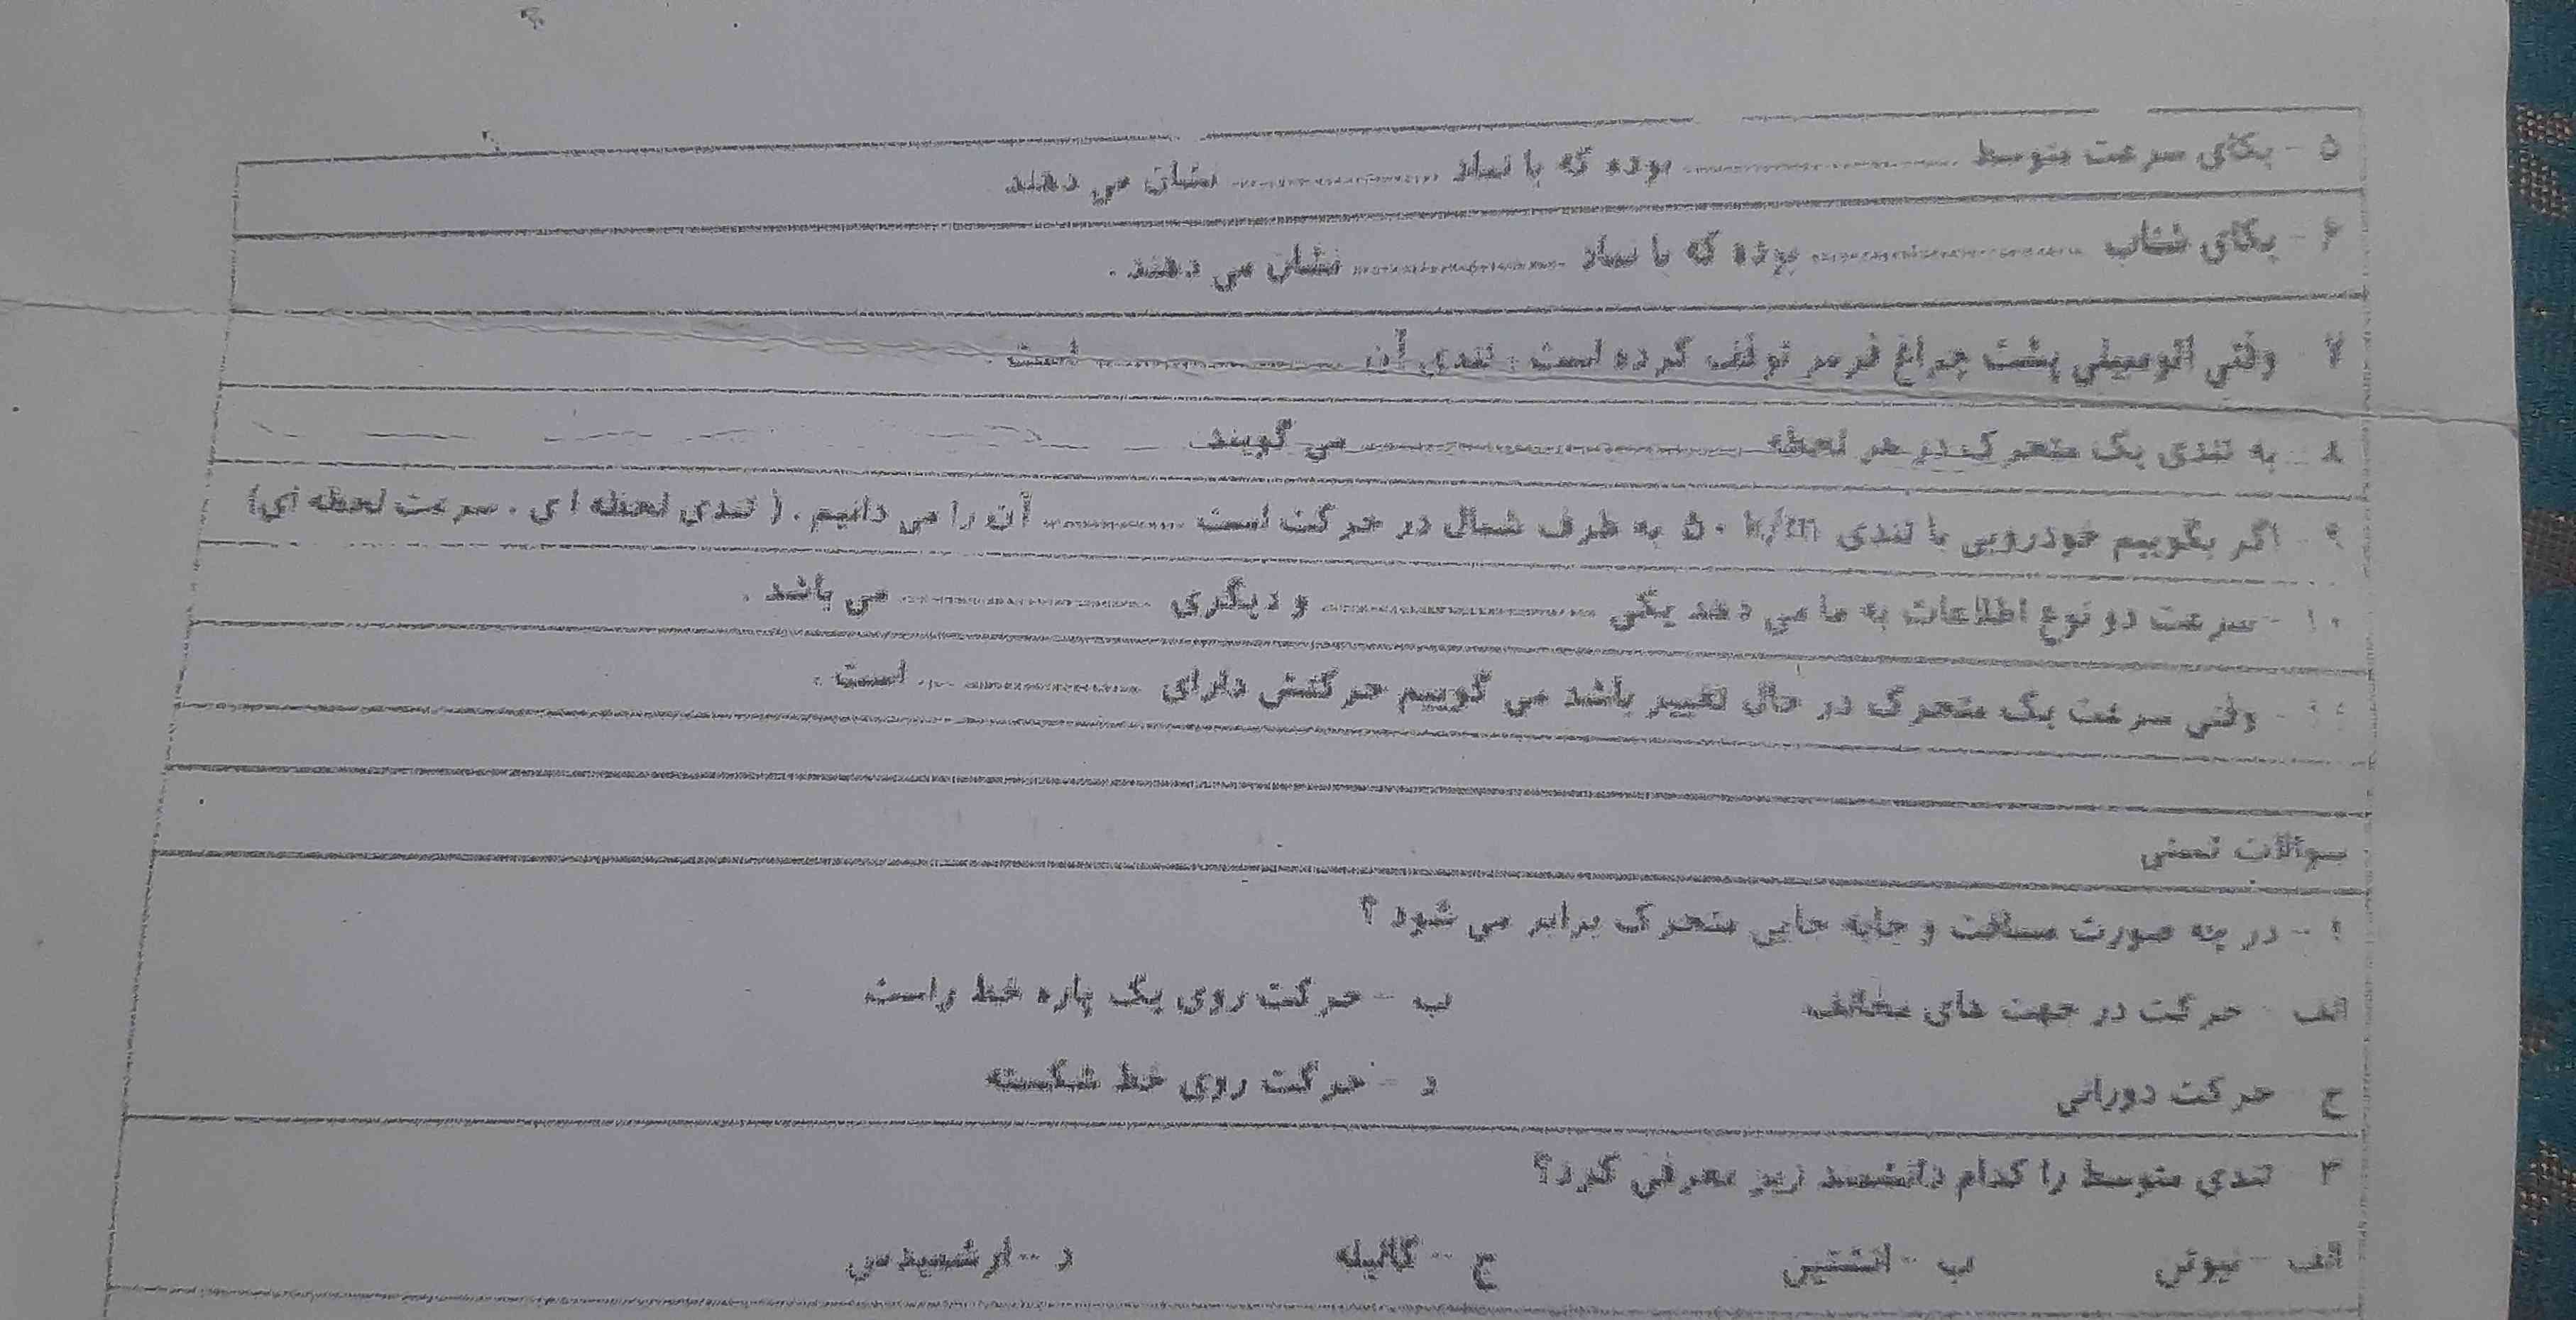 ۵ - یکای سرعت متوسط .................... بوده که با نماد .................... نشان می دهند
۶ - یکای شتاب .................... بوده که با نماد .................... نشان می دهند .
۷ وقتی اتومبیلی پشت چراغ قرمز توقف کرده است ، تندی آن .................... است .
۸ - به تندی یک متحرک در هر لحظه .................... می گویند
۹ - اگر بگوییم خودرویی با تندی ۵۰ k/m به طرف شمال در حرکت است ............ آن را می دانیم . ( تندی لحظه ای . سرعت لحظه ای)
۱۰ - سرعت دو نوع اطلاعات به ما می دهد یکی .................... و دیگری .................... می باشد .
۱۱ - وقتی سرعت یک متحرک در حال تغییر باشد می گوییم حرکتش دارای .................... است .
سوالات تستی
۱ - در چه صورت مسافت و جابه جایی متحرک برابر می شود ؟
الف - حرکت در جهت های مخالف ب - حرکت روی یک پاره خط راست
ج حرکت دورانی د - حرکت روی خط شکسته
۲ تندی متوسط را کدام دانشمند زیر معرفی کرد؟
الف - نیوتن ب - انشتین ج - گالیله د - ارشمیدس